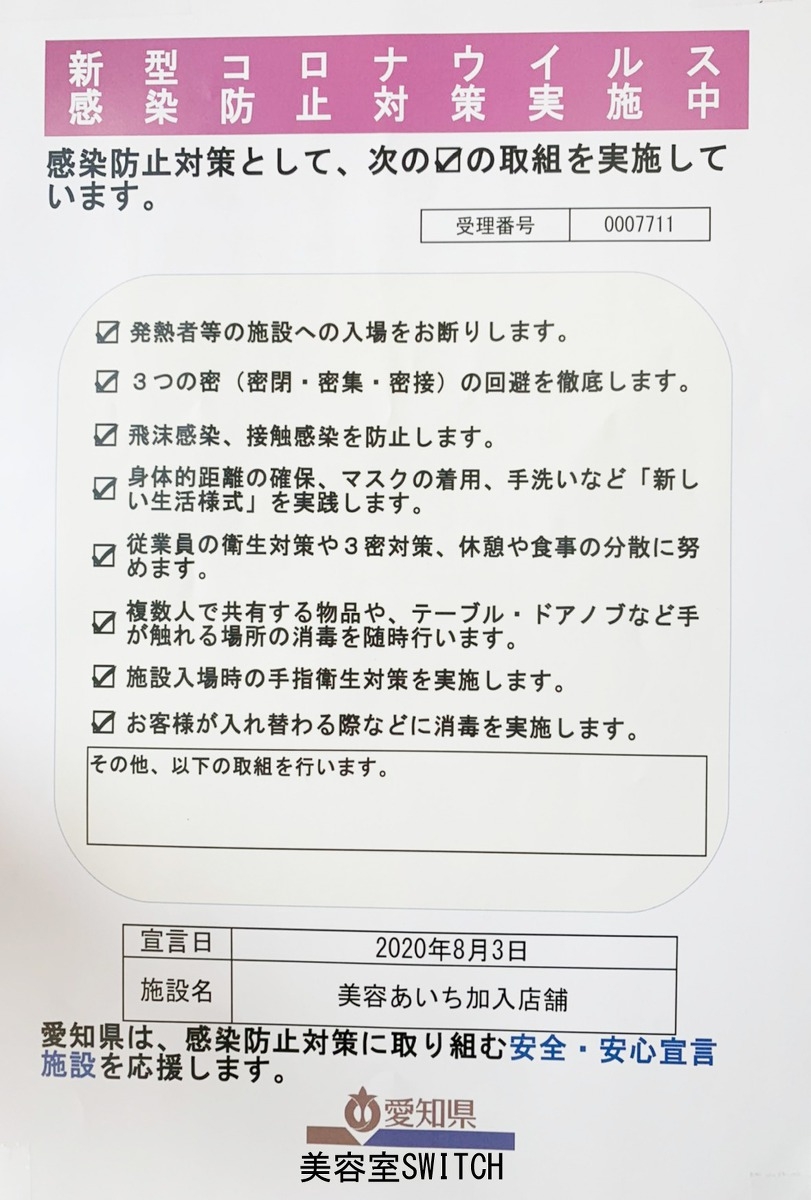 新型コロナウイルス
感染防止対策実施中
感染防止対策として、次の☑の取組を実施して
います。
受理番号 0007711
☑ 発熱者等の施設への入場をお断りします。
☑ 3つの密（密閉・密集・密接）の回避を徹底します。
☑ 飛沫感染、接触感染を防止します。
☑ 身体的距離の確保、マスクの着用、手洗いなど「新し
い生活様式」を実践します。
☑ 従業員の衛生対策や3密対策、休憩や食事の分散に努
めます。
☑ 複数人で共有する物品や、テーブル・ドアノブなど手
が触れる場所の消毒を随時行います。
☑ 施設入場時の手指衛生対策を実施します。
☑ お客様が入れ替わる際などに消毒を実施します。
その他、以下の取組を行います。
宣言日 2020年8月3日
施設名 美容あいち加入店舗
愛知県は、感染防止対策に取り組む安全・安心宣言
施設を応援します。
愛知県
美容室SWITCH